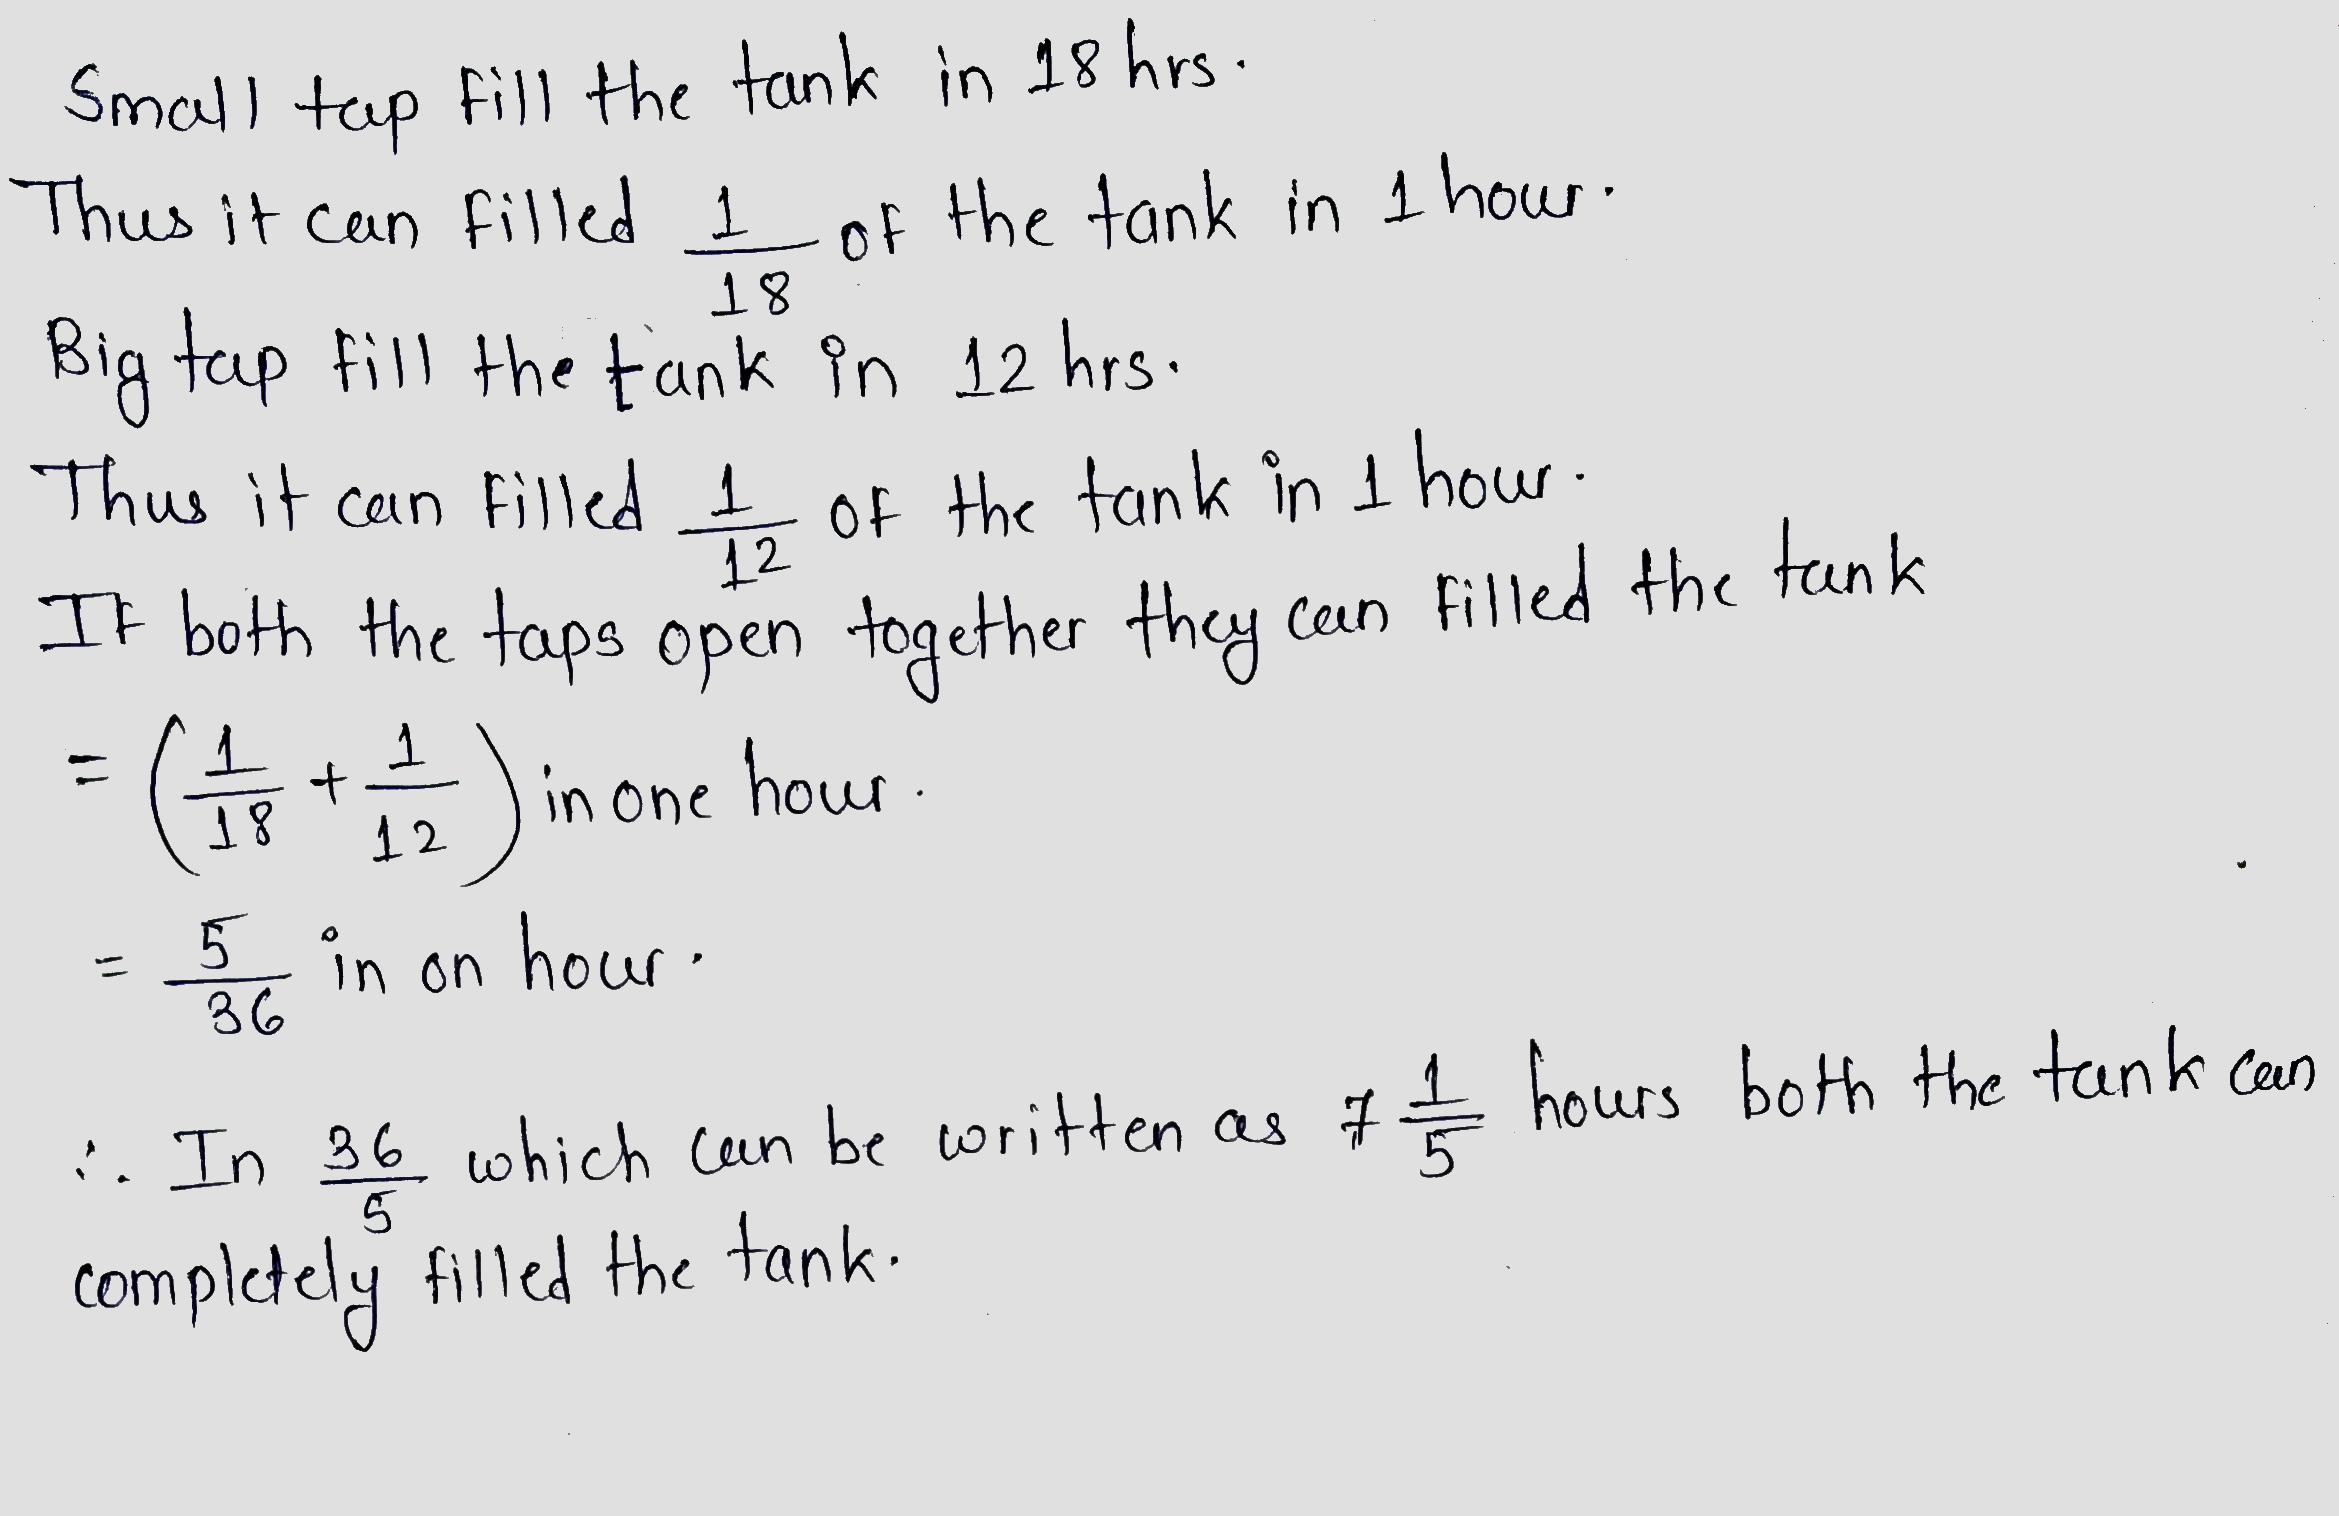 Small tap fill the tank in 18 hrs.
Thus it can filled 1/18 of the tank in 1 hour.
Big tap fill the tank in 12 hrs.
Thus it can filled 1/12 of the tank in 1 hour.
If both the taps open together they can filled the tank
= (1/18 + 1/12) in one hour.
= 5/36 in on hour.
∴ In 36/5 which can be written as 7 1/5 hours both the tank can
completely filled the tank.